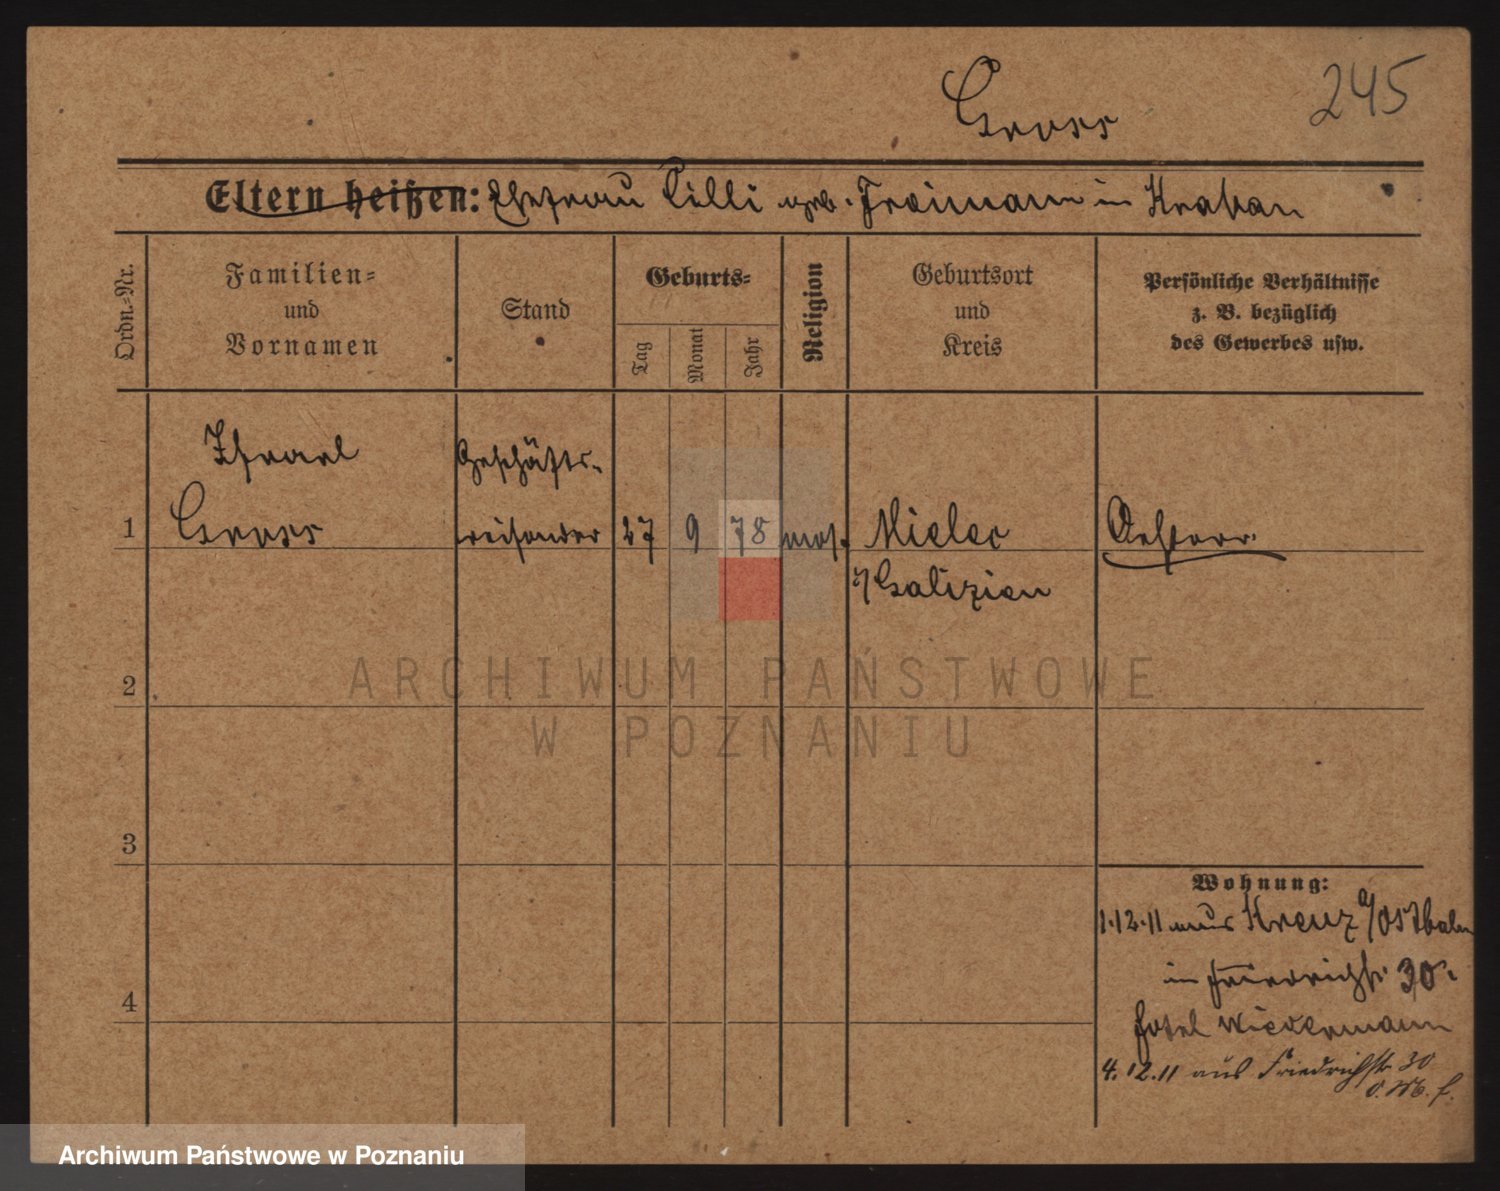 245
Gross
Eltern heißen: Ehefrau Cilli geb. Freimann in Krakau
Ordn.-Nr.
Familien-
und
Vornamen
Stand
Geburts-
Tag
Monat
Jahr
Religion
Geburtsort
und
Kreis
Persönliche Verhältnisse
z. B. bezüglich
des Gewerbes usw.
Israel Geschäfts-
1 Gross reisender 27 9 78 mos. Mielec Oesterr.
i/Galizien
ARCHIWUM PAŃSTWOWE
2
W POZNANIU
3
Wohnung:
1.12.11 aus Kreuz a/Ostbahn
in Friedrichstr. 30.
4
Hotel Wiedermann
4.12.11 aus Friedrichstr 30
Archiwum Państwowe w Poznaniu